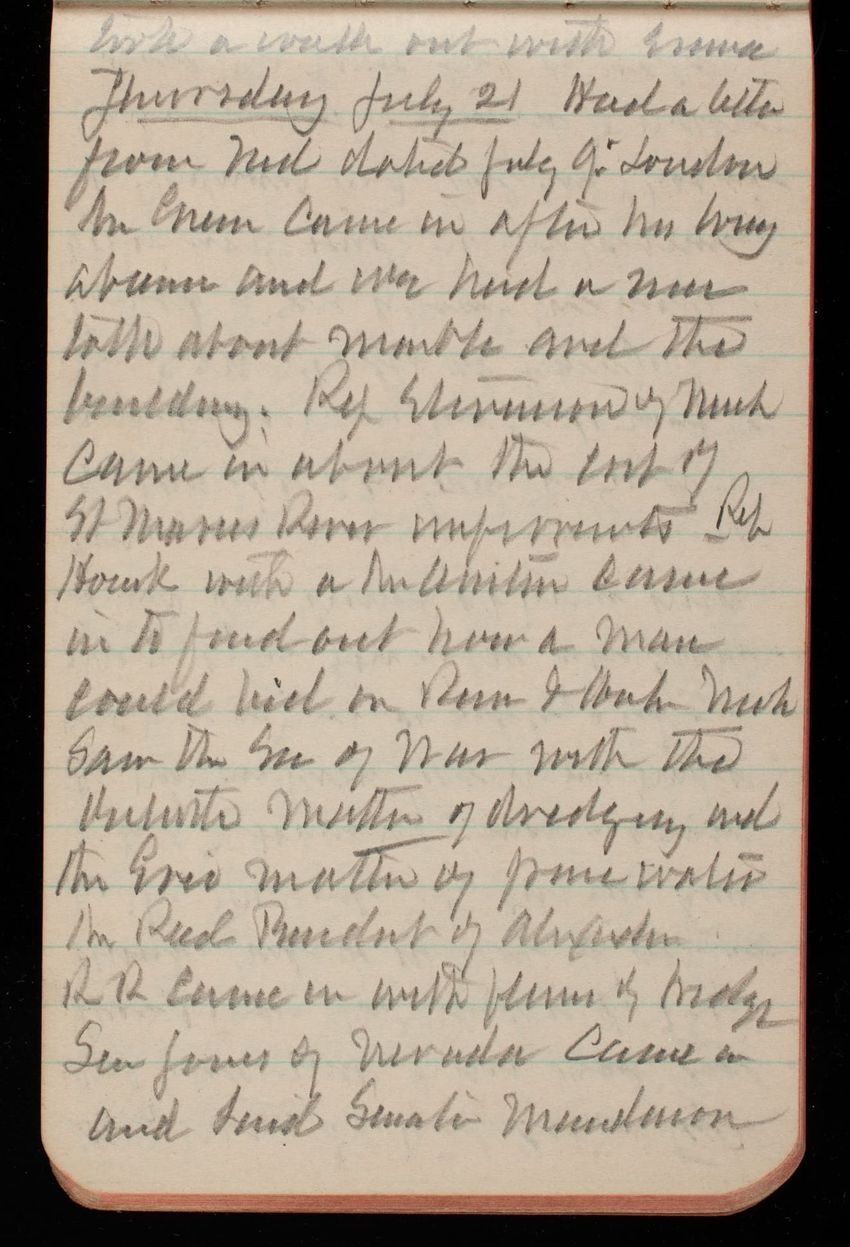 took a walk out with Emma
Thursday July 21 Had a letter
from Ned dated July 9. London
Mr Green came in after his long
absence and we had a nice
talk about marble and the
building. Rep Stevenson of Mich
came in about the cost of
St Marys River improvements Rep
Houk with a Mr came
in to find out how a man
could bid on River & Harbor Work
Saw the Sec of War with the
matter of dredging and
the Erie matter of water
Mr Reed President of Alexander
R R came in with plans of bridge
Sen Jones of Nevada came in
and said Senator Manderson